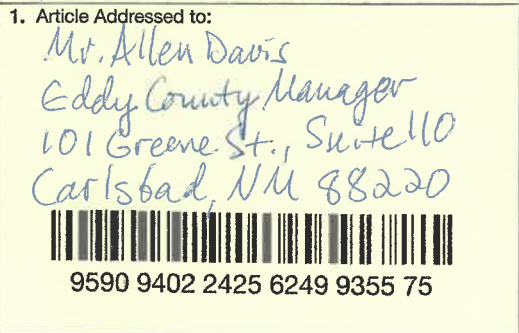 1. Article Addressed to:
Mr. Allen Davis
Eddy County Manager
101 Greene St., Suite 110
Carlsbad, NM 88220
9590 9402 2425 6249 9355 75